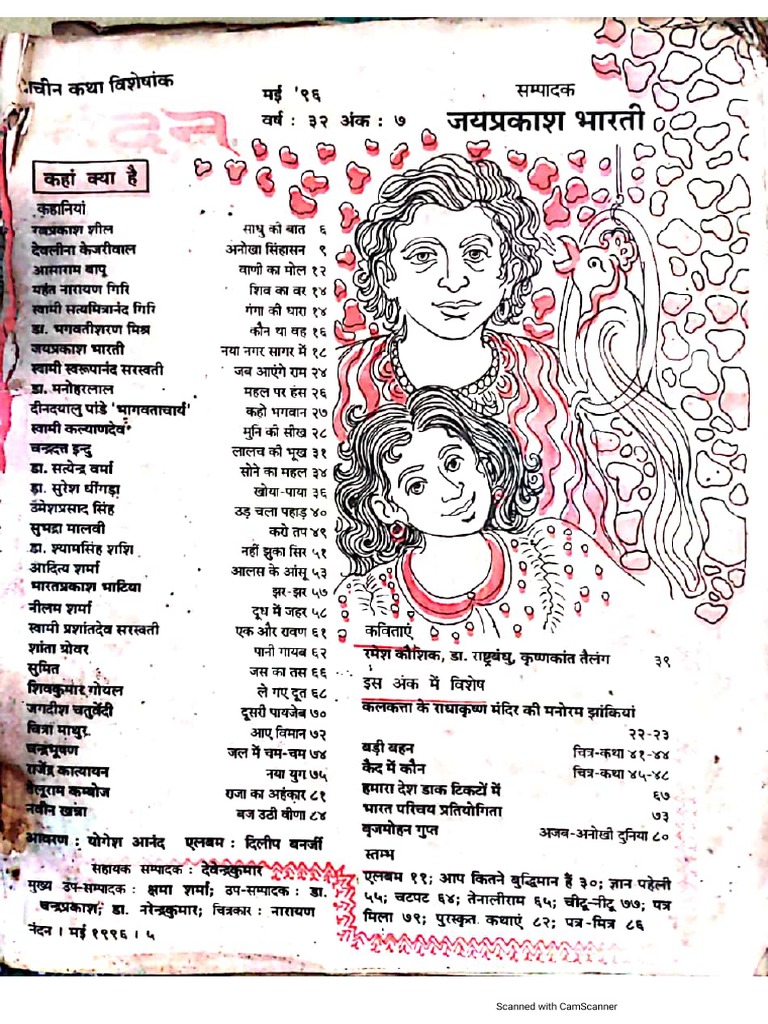 प्राचीन कथा विशेषांक
मई '९६
वर्ष : ३२ अंक : ७
सम्पादक
जयप्रकाश भारती
कहां क्या है
कहानियां
रत्नप्रकाश शील साधु की बात ६
देवलीना केजरीवाल अनोखा सिंहासन ९
आसाराम बापू वाणी का मोल १२
महंत नारायण गिरि शिव का वर १४
स्वामी सत्यमित्रानंद गिरि गंगा की धारा १४
डा. भगवतीशरण मिश्र कौन था वह १६
जयप्रकाश भारती नया नगर सागर में १८
स्वामी स्वरूपानंद सरस्वती जब आएंगे राम २४
डा. मनोहरलाल महल पर हंस २६
दीनदयालु पांडे 'भागवताचार्य' कहो भगवान २७
स्वामी कल्याणदेव मुनि की सीख २८
चन्द्रदत्त इन्दु लालच की भूख ३१
डा. सत्येन्द्र वर्मा सोने का महल ३४
डा. सुरेश धींगड़ा खोया-पाया ३६
उमेशप्रसाद सिंह उड़ चला पहाड़ ४०
सुभद्रा मालवी करो तप ४९
डा. श्यामसिंह शशि नहीं झुका सिर ५१
आदित्य शर्मा आलस के आंसू ५३
भारतप्रकाश भाटिया झर-झर ५७
नीलम शर्मा दूध में जहर ५८
स्वामी प्रशांतदेव सरस्वती एक और रावण ६१
शांता ग्रोवर पानी गायब ६२
सुमित जस का तस ६६
शिवकुमार गोयल ले गए दूत ६८
जगदीश चतुर्वेदी दूसरी पायजेब ७०
चित्रा माथुर आए विमान ७२
चन्द्रभूषण जल में चम-चम ७४
राजेंद्र कात्यायन नया युग ७५
तेलूराम कम्बोज राजा का अहंकार ८१
नवीन खन्ना बज उठी वीणा ८४
आवरण : योगेश आनंद एलबम : दिलीप बनर्जी
सहायक सम्पादक : देवेन्द्रकुमार
मुख्य उप-सम्पादक : क्षमा शर्मा; उप-सम्पादक : डा.
चन्द्रप्रकाश; डा. नरेन्द्रकुमार; चित्रकार : नारायण
नंदन । मई १९९६ । ५
कविताएं
रमेश कौशिक, डा. राष्ट्रबंधु, कृष्णकांत तैलंग ३९
इस अंक में विशेष
कलकत्ता के राधाकृष्ण मंदिर की मनोरम झांकियां
२२-२३
बड़ी बहन चित्र-कथा ४१-४४
कैद में कौन चित्र-कथा ४५-४८
हमारा देश डाक टिकटों में ६७
भारत परिचय प्रतियोगिता ७३
बृजमोहन गुप्त अजब-अनोखी दुनिया ८०
स्तम्भ
एलबम ११; आप कितने बुद्धिमान हैं ३०; ज्ञान पहेली
५५; चटपट ६४; तेनालीराम ६५; चीटू-नीटू ७७; पत्र
मिला ७९; पुरस्कृत कथाएं ८२; पत्र-मित्र ८६
Scanned with CamScanner